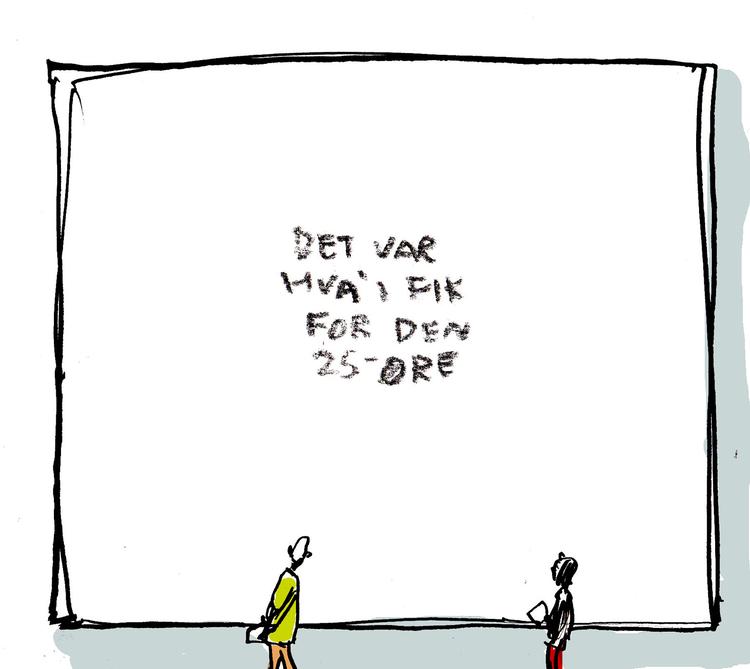 DET VAR
HVA' I FIK
FOR DEN
25-ØRE